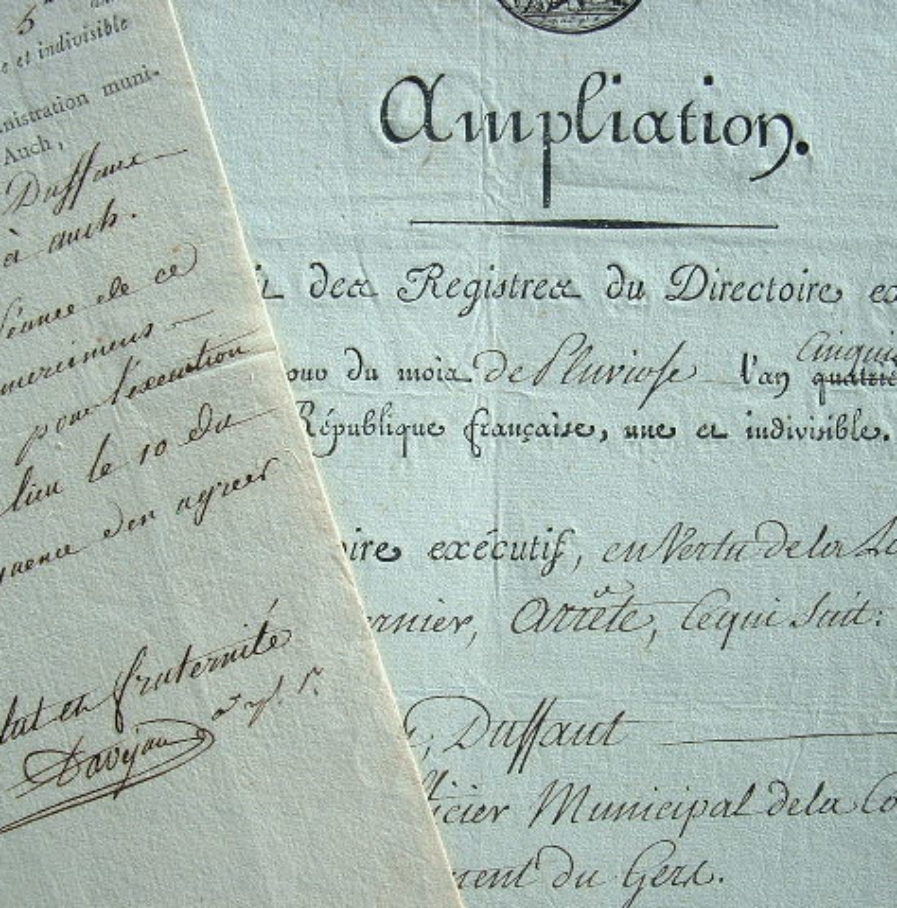 5
e et indivisible
nistration muni-
Auch,
Duffaut
à auch.
Séance de ce
pour l'execution
lieu le 10 du
quence d'en agreer
lut et fraternité
Davejan
Ampliation.
des Registres du Directoire ex
du mois de Pluviose l'an Cinqui quatriè
République française, une et indivisible.
ire exécutif, en Vertu de la Lo
ernier, Arrête, Ce qui Suit:
Duffaut
icier Municipal de la Co
ment du Gers.